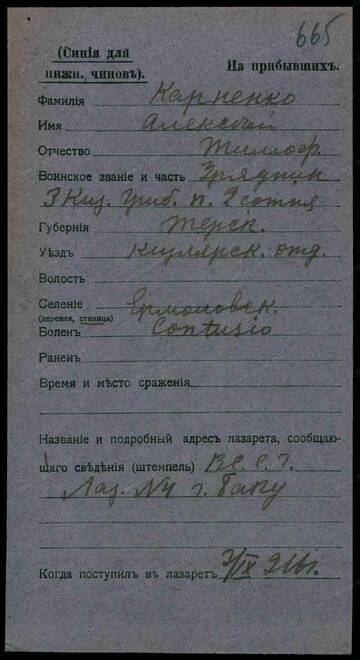 665
(Синія для
нижн. чиновъ).
На прибывшихъ.
Фамилія Карпенко
Имя Алексѣй
Отчество Тимоф.
Воинское званіе и часть Урядник
3 Киз. Греб. п. 2 сотня
Губернія Терск.
Уѣздъ Кизлярск. отд.
Волость
Селеніе Ермоловск.
(деревня, станица)
Боленъ Contusio
Раненъ
Время и мѣсто сраженія
Названіе и подробный адресъ лазарета, сообщаю-
щаго свѣдѣнія (штемпель) В.С.С.Г.
Лаз. №4 г. Баку
Когда поступилъ въ лазаретъ 3/IX 916г.